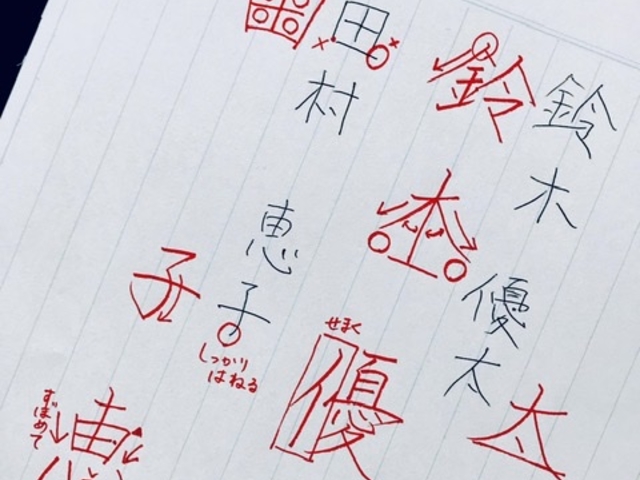 鈴木優太
鈴
木
優
せまく
太
田村恵子
田
子
しっかり
はねる
恵
すぼめて